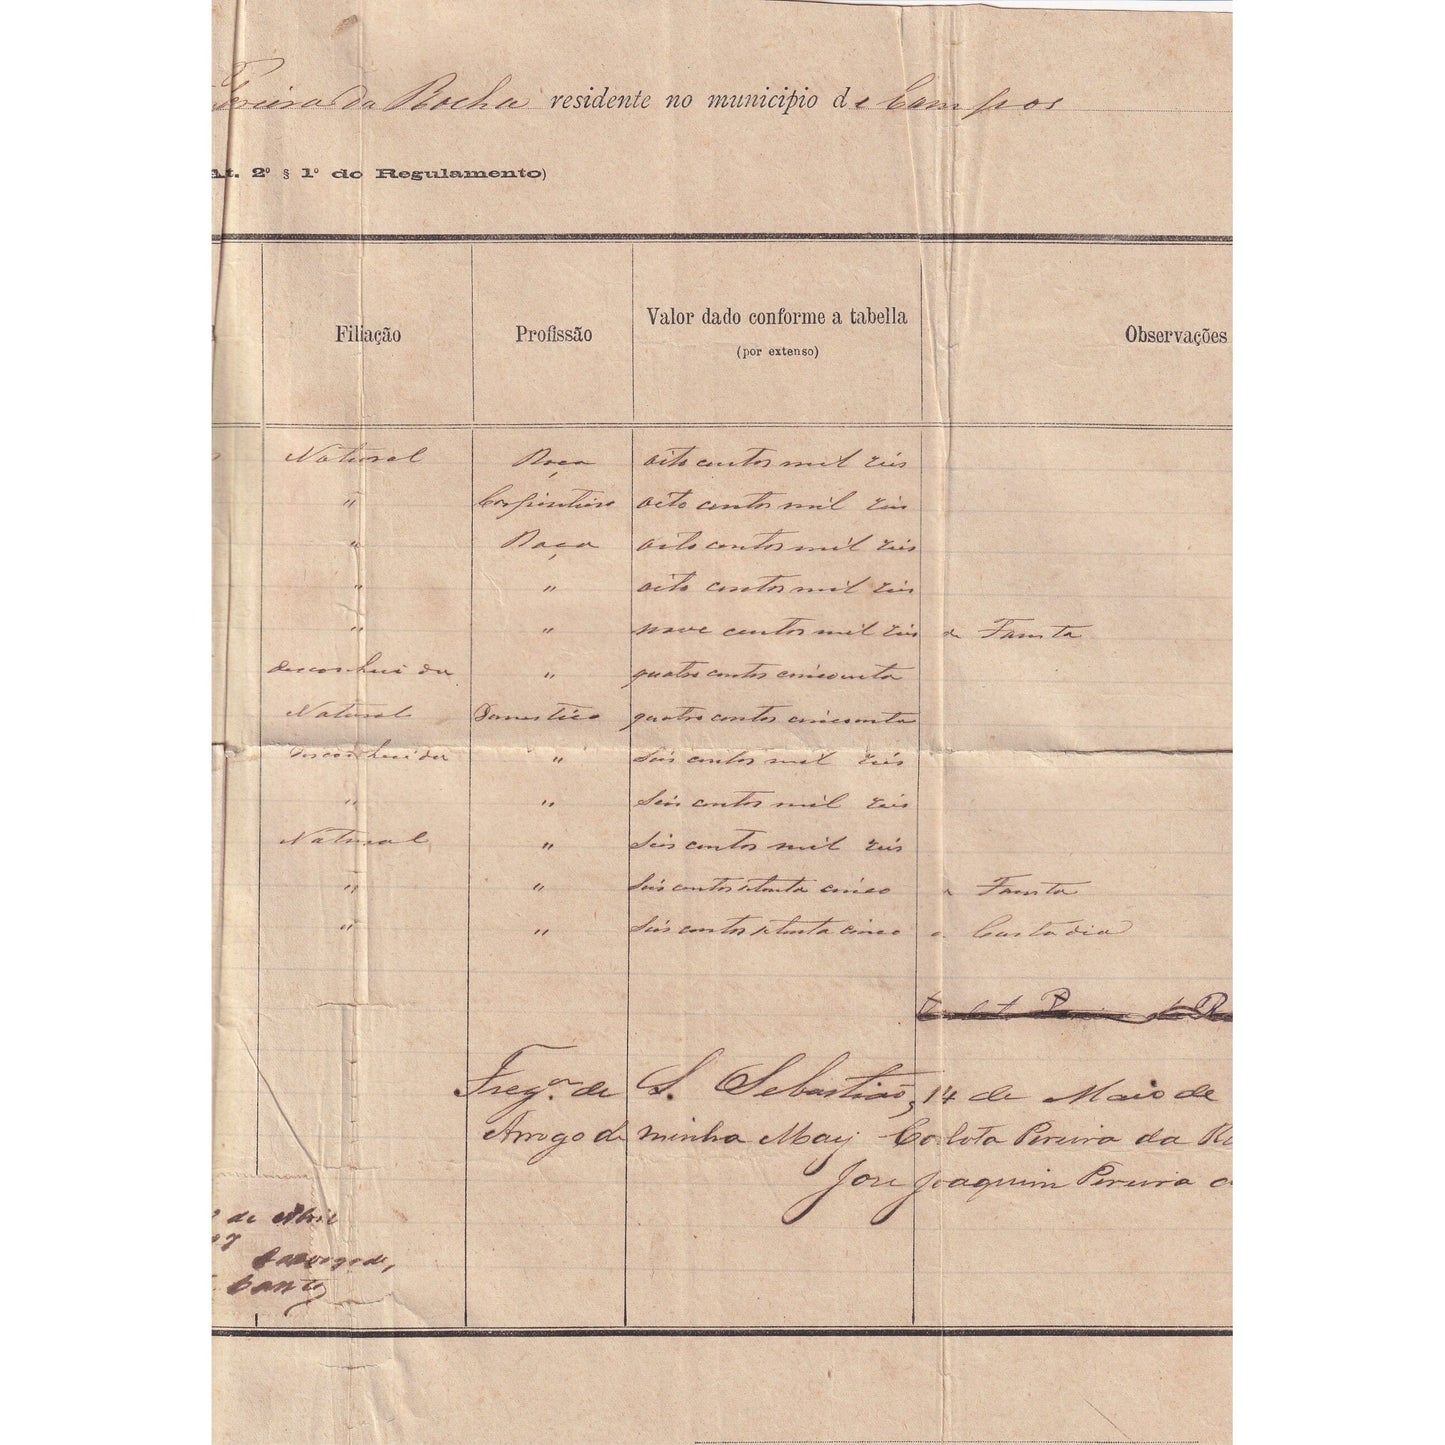 Pereira da Rocha residente no municipio de Campos
Art. 2º § 1º do Regulamento)
Filiação Profissão Valor dado conforme a tabella (por extenso) Observações
Natural Roça oito centos mil réis
" Carpinteiro oito centos mil réis
" Roça oito centos mil réis
" " oito centos mil réis
" " nove centos mil réis a Fausta
desconhecida " quatro centos cincoenta
Natural Domestico quatro centos cincoenta
Desconhecida " seis centos mil réis
" " seis centos mil réis
Natural " seis centos mil réis
" " seis centos setenta cinco a Fausta
" " seis centos setenta cinco a Custodia
Fregª de S. Sebastião, 14 de Maio de
Arrogo de minha May Carlota Pereira da
José Joaquim Pereira
de Abril